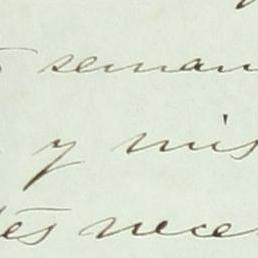 seman
y mis
tes nece